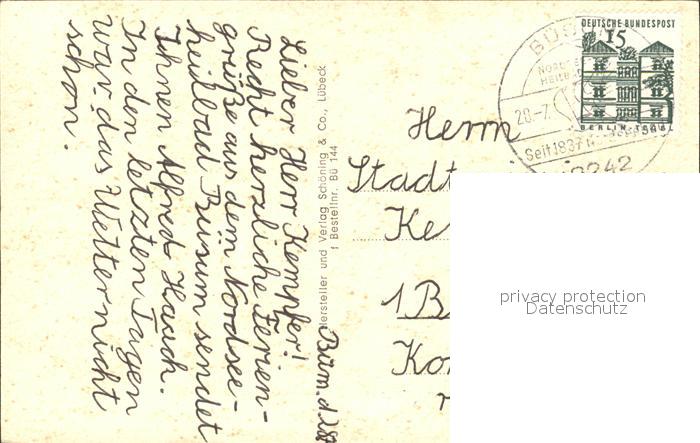 Büsum, d. 28
Lieber Herr Kempfer!
Recht herzliche Ferien-
grüße aus dem Nordsee-
heilbad Büsum sendet
Ihnen Alfred Hauch.
In den letzten Tagen
war das Wetter nicht
schön.
Hersteller und Verlag Schöning & Co., Lübeck
Bestellnr. Bü 144
DEUTSCHE BUNDESPOST
15
BERLIN TEGEL
BÜS
28.-7.
Seit 1837
2242
Herrn
Stadt
Ke
1 B
Ko
privacy protection
Datenschutz